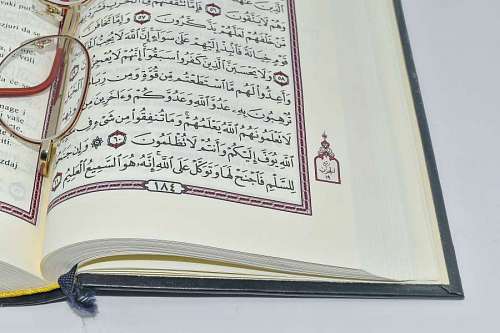 vaki put
zjuri da s
voli!
da će s
nage i
vaše
zdaj
وَهُمْ لَا يَتَّقُونَ ٥٦ فَإِمَّا تَثْقَفَنَّهُمْ
مَّنْ خَلْفَهُمْ لَعَلَّهُمْ يَذَّكَّرُونَ ٥٧ وَإِمَّا تَخَافَنَّ
قَوْمٍ خِيَانَةً فَٱنۢبِذْ إِلَيْهِمْ عَلَىٰ سَوَآءٍ إِنَّ ٱللَّهَ لَا يُحِبُّ
٥٨ وَلَا يَحْسَبَنَّ ٱلَّذِينَ كَفَرُوا۟ سَبَقُوٓا۟ إِنَّهُمْ لَا يُعْجِزُونَ
وَأَعِدُّوا۟ لَهُم مَّا ٱسْتَطَعْتُم مِّن قُوَّةٍ وَمِن رِّبَاطِ
تُرْهِبُونَ بِهِۦ عَدُوَّ ٱللَّهِ وَعَدُوَّكُمْ وَءَاخَرِينَ مِن
لَا تَعْلَمُونَهُمُ ٱللَّهُ يَعْلَمُهُمْ وَمَا تُنفِقُوا۟ مِن شَىْءٍ فِى
ٱللَّهِ يُوَفَّ إِلَيْكُمْ وَأَنتُمْ لَا تُظْلَمُونَ ٦٠ وَإِن جَنَحُوا۟
لِلسَّلْمِ فَٱجْنَحْ لَهَا وَتَوَكَّلْ عَلَى ٱللَّهِ إِنَّهُۥ هُوَ ٱلسَّمِيعُ ٱلْعَلِيمُ ٦١
١٨٤